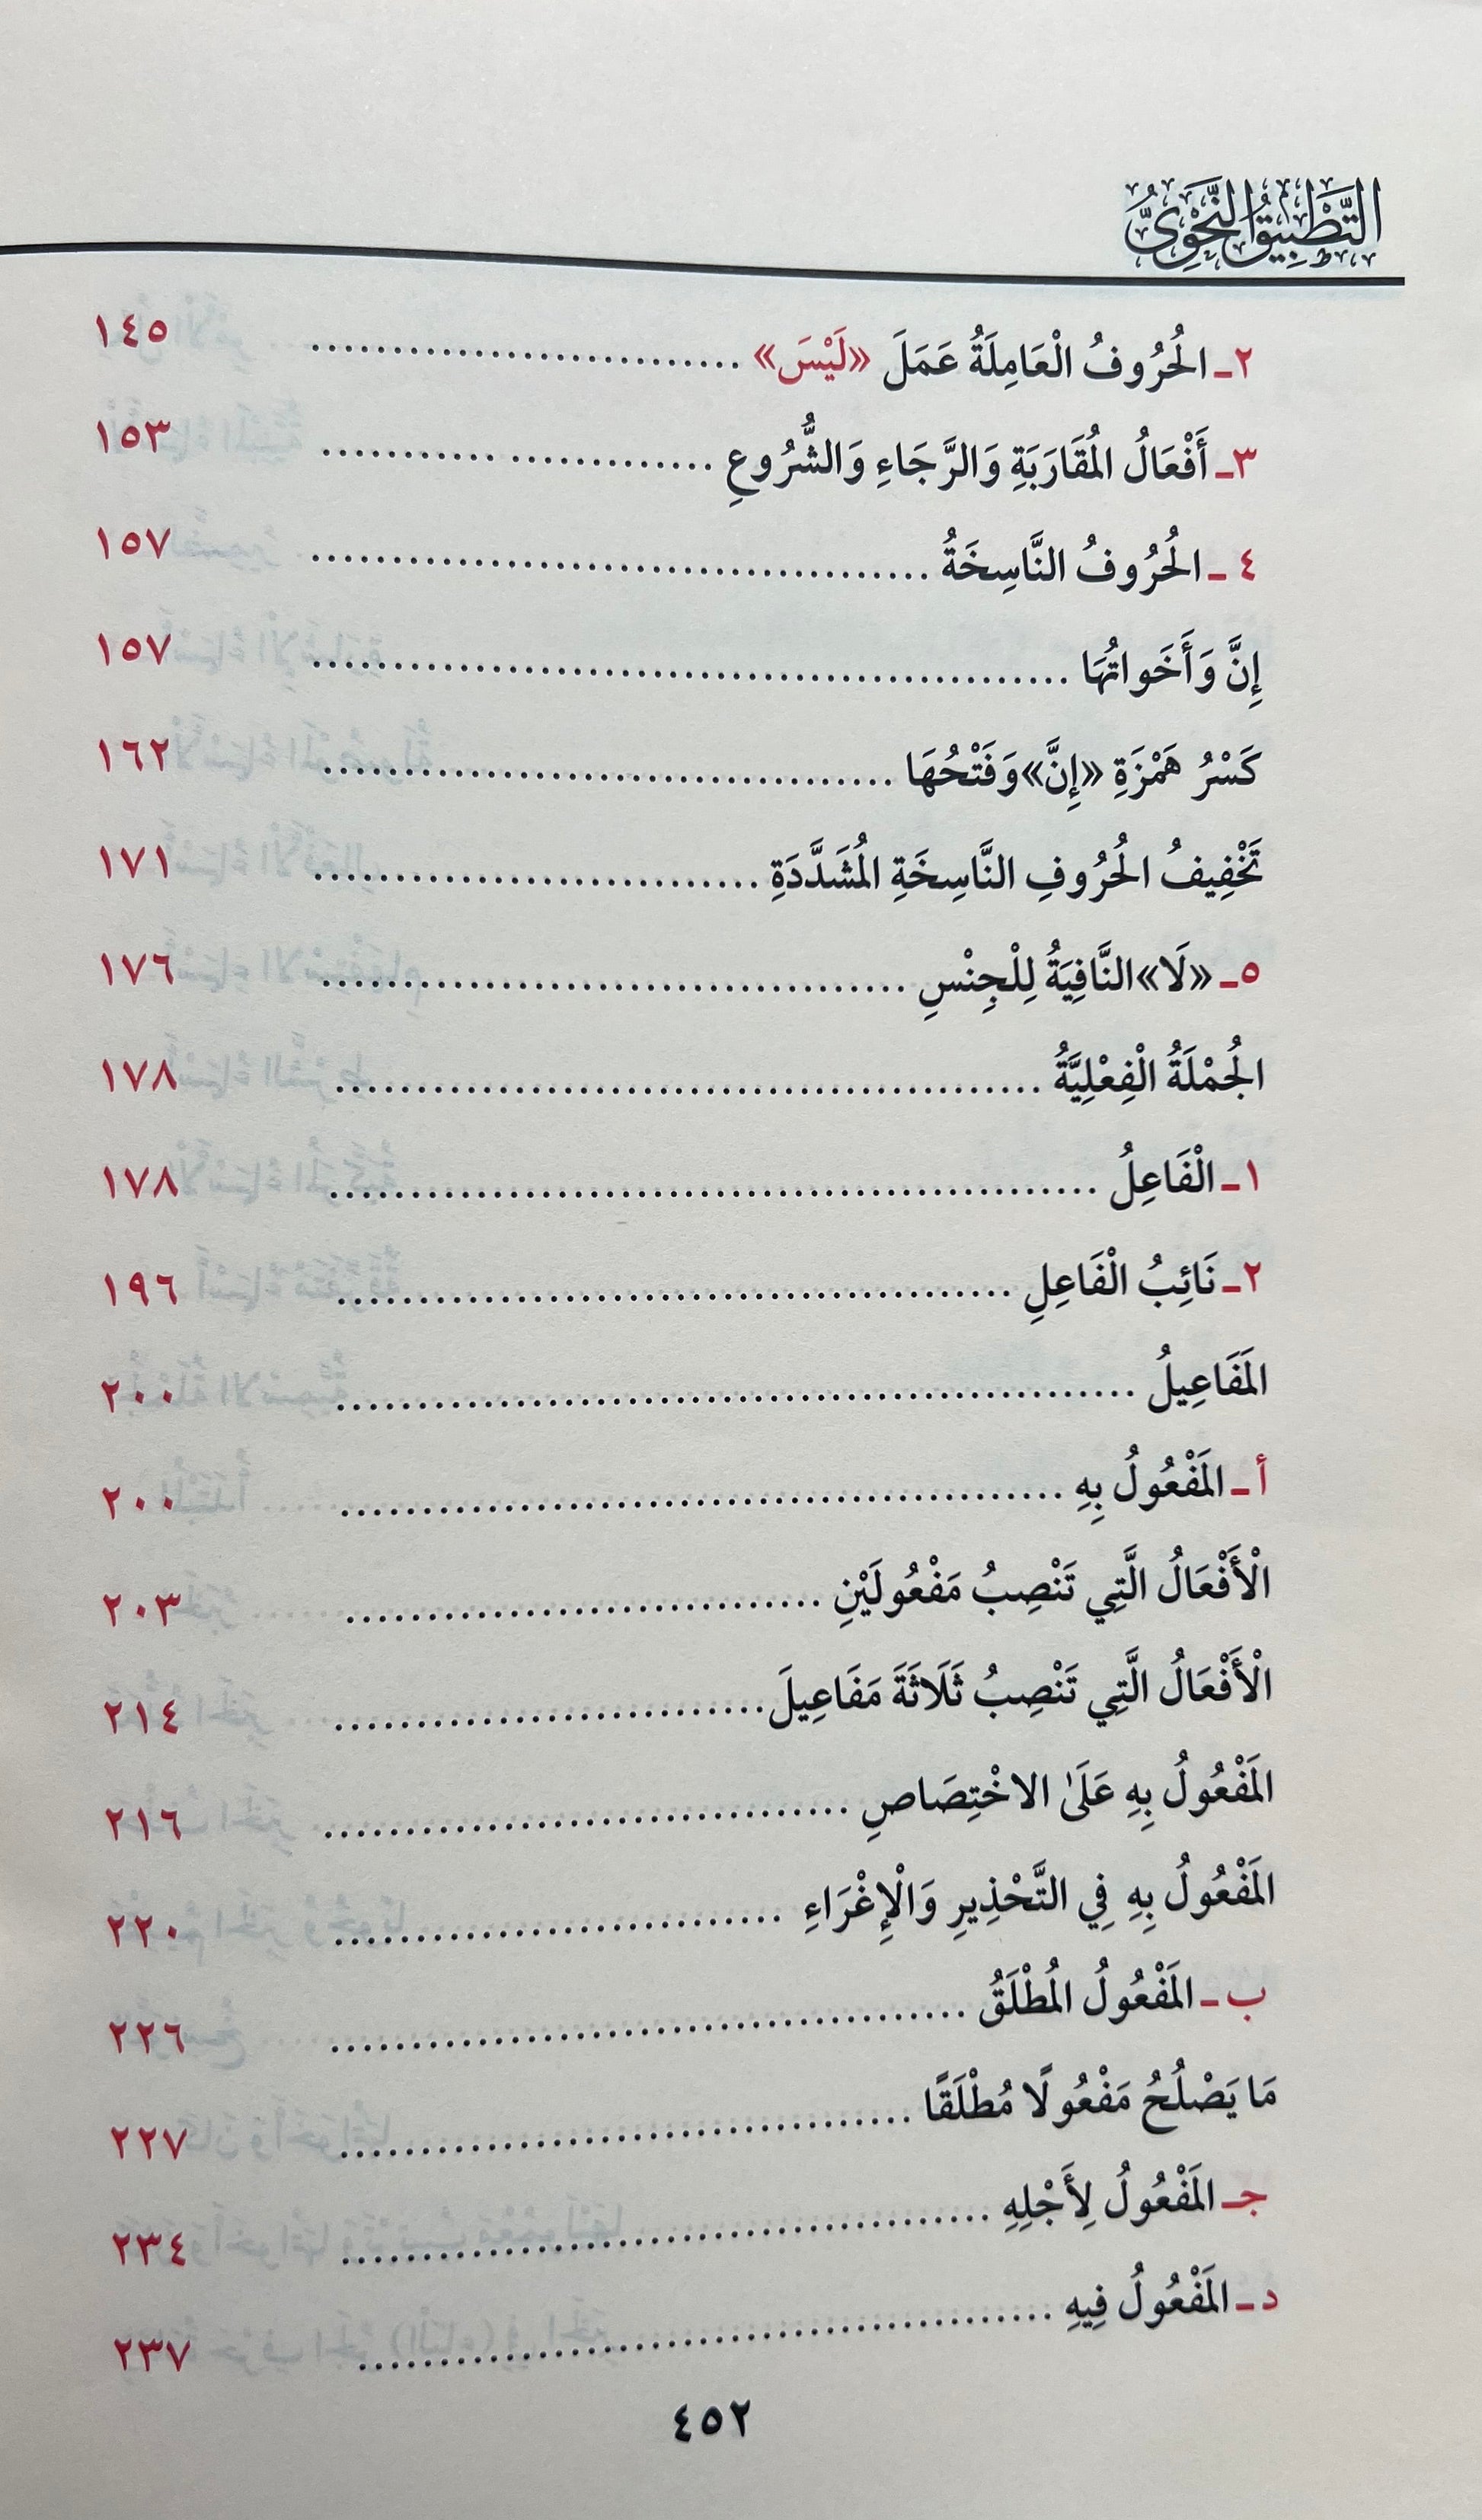 التَّطْبِيقُ النَّحْوِيُّ
٢ـ الْحُرُوفُ الْعَامِلَةُ عَمَلَ «لَيْسَ» ........................... ١٤٥
٣ـ أَفْعَالُ الْمُقَارَبَةِ وَالرَّجَاءِ وَالشُّرُوعِ ........................ ١٥٣
٤ ـ الْحُرُوفُ النَّاسِخَةُ ....................................... ١٥٧
إِنَّ وَأَخَوَاتُهَا ................................................ ١٥٧
كَسْرُ هَمْزَةِ «إِنَّ» وَفَتْحُهَا .................................... ١٦٢
تَخْفِيفُ الْحُرُوفِ النَّاسِخَةِ الْمُشَدَّدَةِ ............................ ١٧١
٥ـ «لَا» النَّافِيَةُ لِلْجِنْسِ ..................................... ١٧٦
الْجُمْلَةُ الْفِعْلِيَّةُ ............................................. ١٧٨
١ـ الْفَاعِلُ ................................................. ١٧٨
٢ـ نَائِبُ الْفَاعِلِ ........................................... ١٩٦
الْمَفَاعِيلُ ................................................... ٢٠٠
أ ـ الْمَفْعُولُ بِهِ .............................................. ٢٠٠
الْأَفْعَالُ الَّتِي تَنْصِبُ مَفْعُولَيْنِ .............................. ٢٠٣
الْأَفْعَالُ الَّتِي تَنْصِبُ ثَلَاثَةَ مَفَاعِيلَ ........................... ٢١٤
الْمَفْعُولُ بِهِ عَلَىٰ الاخْتِصَاصِ ................................. ٢١٦
الْمَفْعُولُ بِهِ فِي التَّحْذِيرِ وَالْإِغْرَاءِ ............................. ٢٢٠
ب ـ الْمَفْعُولُ الْمُطْلَقُ ........................................ ٢٢٦
مَا يَصْلُحُ مَفْعُولًا مُطْلَقًا .................................... ٢٢٧
جـ ـ الْمَفْعُولُ لِأَجْلِهِ ......................................... ٢٣٤
د ـ الْمَفْعُولُ فِيهِ ............................................ ٢٣٧
٤٥٢